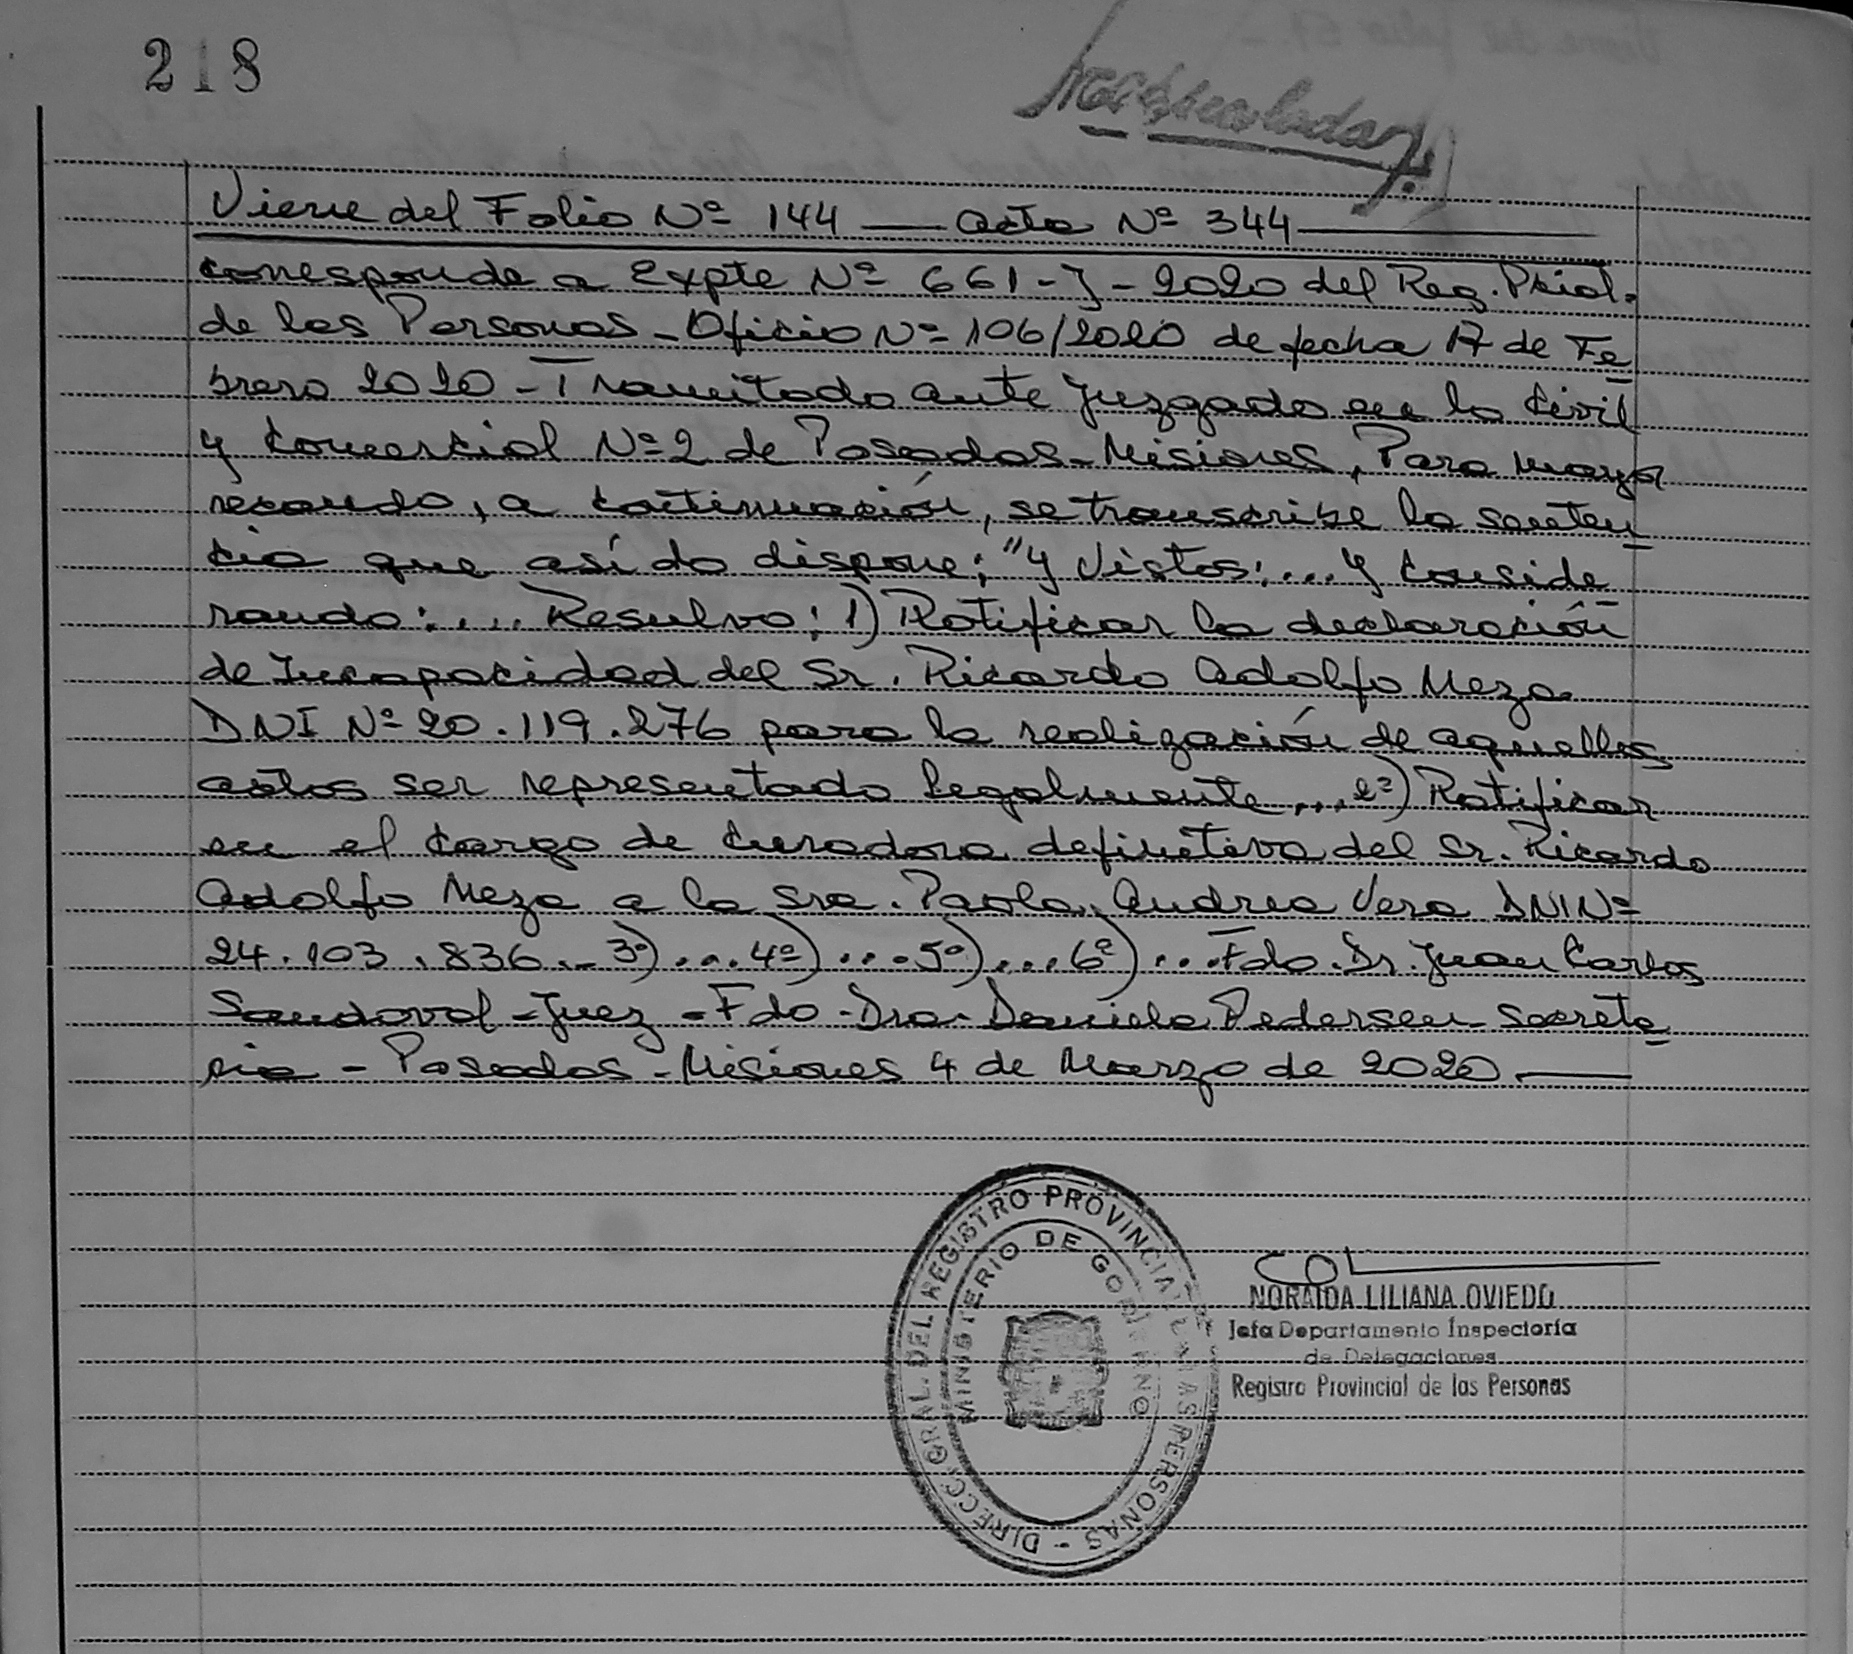 218
Viene del Folio Nº 144 — Acta Nº 344
corresponde a Expte Nº 661-J-2020 del Reg. Pcial.
de las Personas - Oficio Nº 106/2020 de fecha 17 de Fe
brero 2020 - Tramitado ante Juzgado en lo Civil
y Comercial Nº 2 de Posadas - Misiones, Para mayor
recaudo, a continuación, se transcribe la senten
cia que así do dispone: "y Vistos:... y Conside
rando:.... Resuelvo: 1) Ratificar la declaración
de Incapacidad del Sr. Ricardo Adolfo Meza
DNI Nº 20.119.276 para la realización de aquellos
actos ser representado legalmente... 2º) Ratificar
en el cargo de Curadora definitiva del Sr. Ricardo
Adolfo Meza a la Sra. Paola Andrea Vera DNI Nº
24.103.836.- 3º)...4º)....5º)....6º)...Fdo. Dr. Juan Carlos
Sandoval - Juez - Fdo - Dra - Daniela Pedersen - Secreta
ria - Posadas - Misiones 4 de Marzo de 2020
DIRECC. GRAL. DEL REGISTRO PROVINCIAL DE LAS PERSONAS -
MINISTERIO DE GOBIERNO
NORAIDA LILIANA OVIEDO
Jefa Departamento Inspectoría
de Delegaciones
Registro Provincial de las Personas